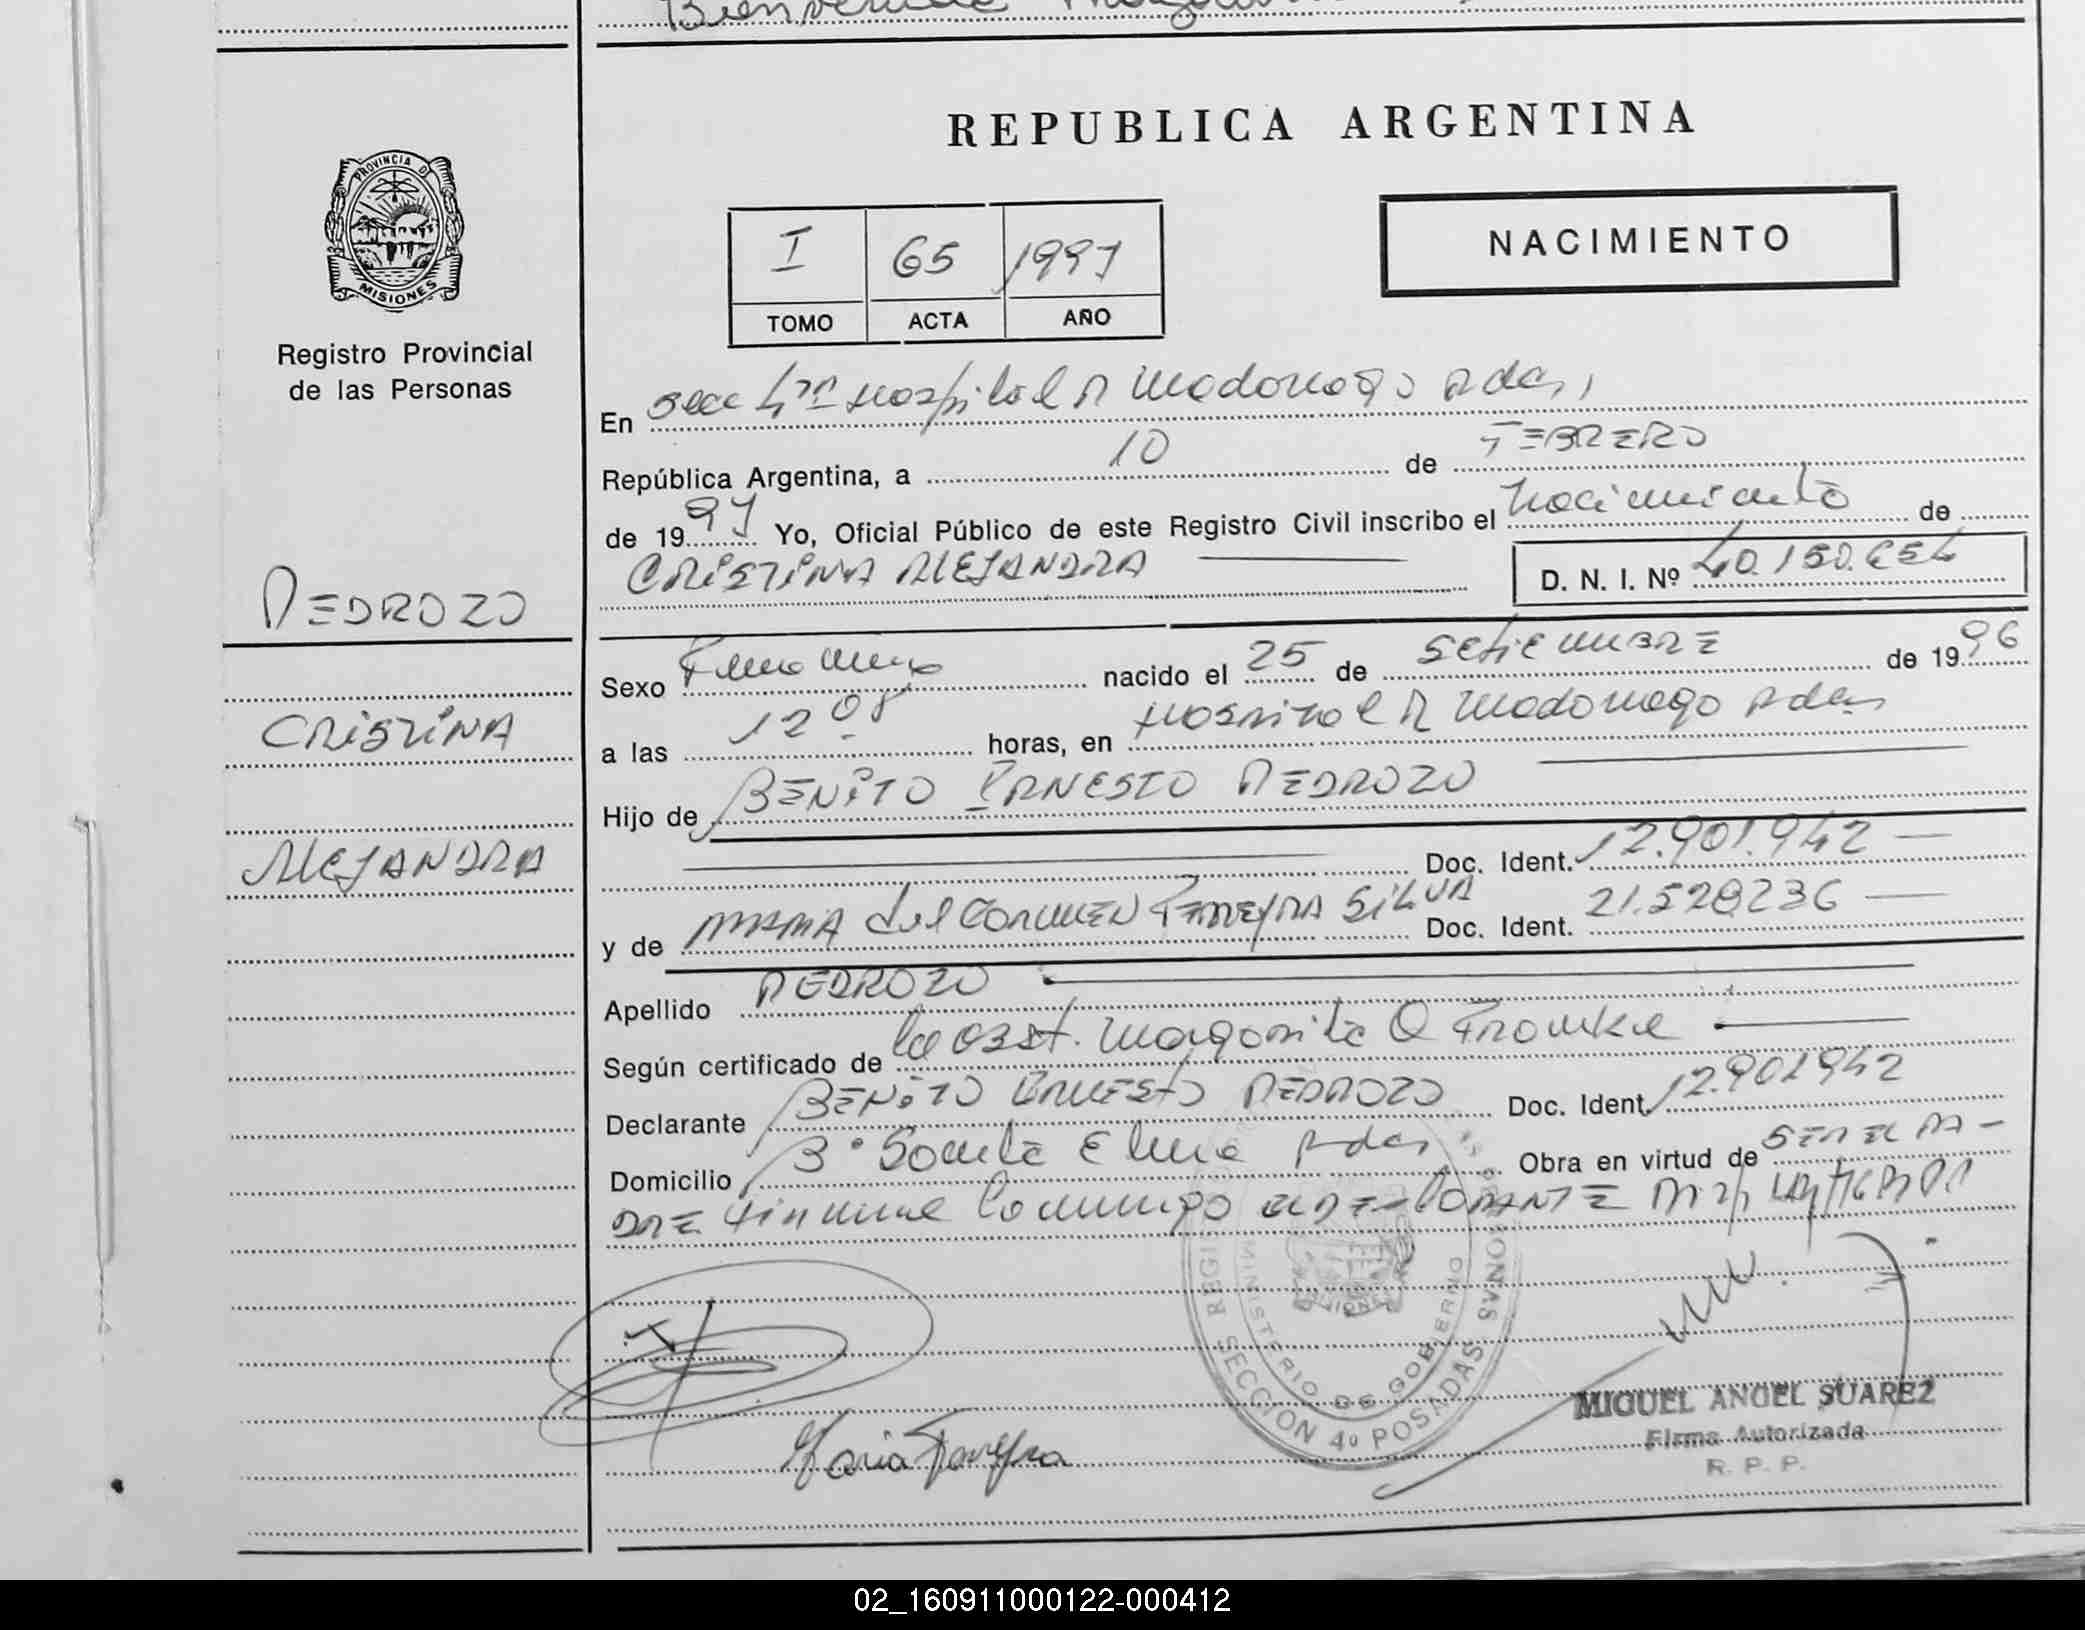 Bienvenida
REPUBLICA ARGENTINA
PROVINCIA DE
MISIONES
Registro Provincial
de las Personas
I 65 1997
TOMO ACTA AÑO
NACIMIENTO
En Secc 4ta Hospital R Madariaga Pdas,
República Argentina, a 10 de FEBRERO
de 1997 Yo, Oficial Público de este Registro Civil inscribo el Nacimiento de
CRISTINA ALEJANDRA
D. N. I. Nº 40.150.654
PEDROZO
CRISTINA
ALEJANDRA
Sexo Femenino nacido el 25 de SEtiEMBRE de 1996
a las 12 08 horas, en Hospital R Madariaga Pdas
Hijo de BENITO ERNESTO PEDROZO
Doc. Ident. 12.901.942
y de MARIA del CARMEN FERREYRA SILVA Doc. Ident. 21.528.236
Apellido PEDROZO
Según certificado de la OBST. Margarita Q
Declarante BENITO ERNESTO PEDROZO Doc. Ident. 12.901942
Domicilio B° Santa Elena Pdas Obra en virtud de SER EL PA-
DRE firma conmigo el DECLARANTE
REGI
SECCION 4º POSADAS
MINISTERIO DE GOBIERNO
MISIONES
Maria Ferreyra
MIGUEL ANGEL SUAREZ
Firma Autorizada
R. P. P.
02_160911000122-000412